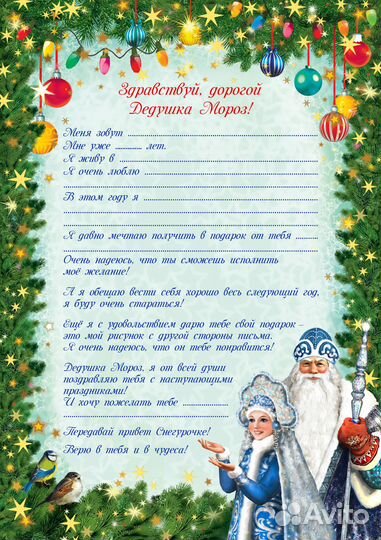 Здравствуй, дорогой
Дедушка Мороз!
Меня зовут
Мне уже ............ лет.
Я живу в
Я очень люблю
В этом году я
Я давно мечтаю получить в подарок от тебя
Очень надеюсь, что ты сможешь исполнить
моё желание!
А я обещаю вести себя хорошо весь следующий год,
я буду очень стараться!
Ещё я с удовольствием дарю тебе свой подарок –
это мой рисунок с другой стороны письма.
Я очень надеюсь, что он тебе понравится!
Дедушка Мороз, я от всей души
поздравляю тебя с наступающими
праздниками!
И хочу пожелать тебе
Передавай привет Снегурочке!
Верю в тебя и в чудеса!
Avito